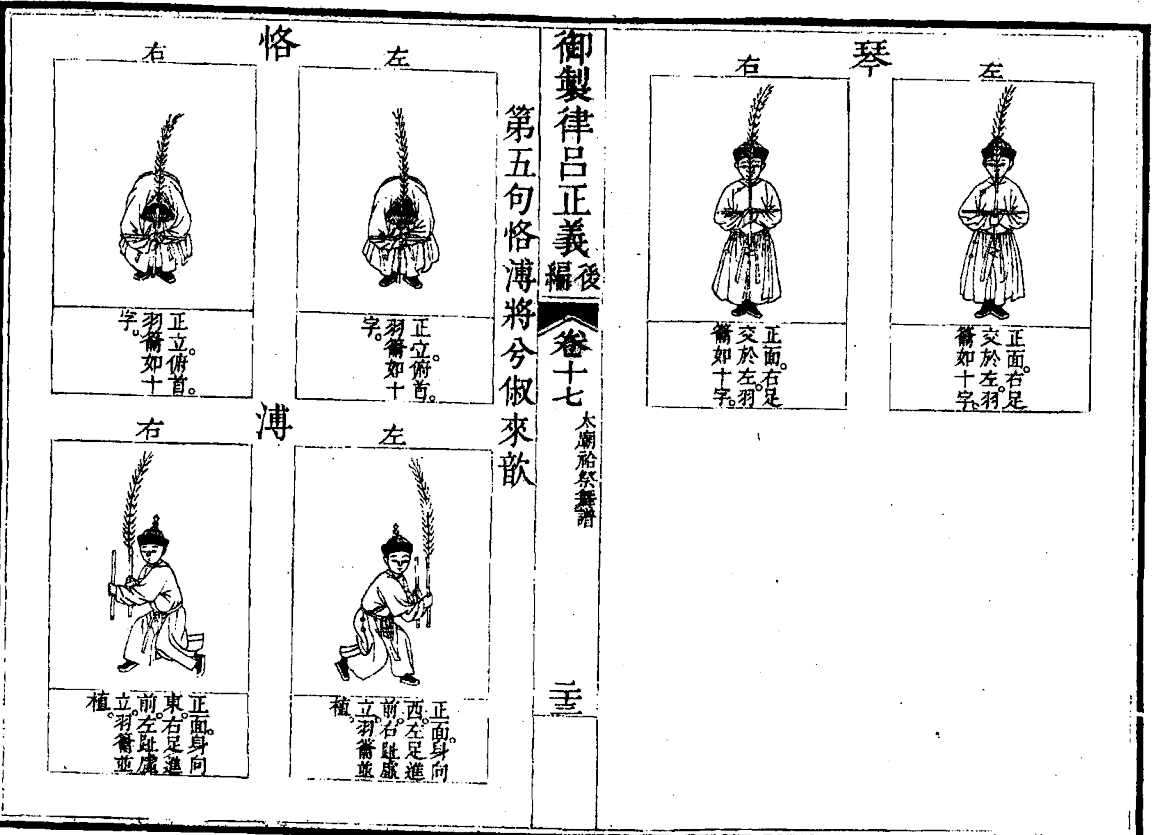 琴
左
正面。右足
交於左。羽
籥如十字。
右
正面。右足
交於左。羽
籥如十字。
御製律呂正義後編
卷十七
太廟祫祭舞譜
二十三
第五句恪溥將兮俶來歆
恪
左
正立。俯首。
羽籥如十
字。
右
正立。俯首。
羽籥如十
字。
溥
左
正面。身向
西。左足進
前。右趾虛
立。羽籥並
植。
右
正面。身向
東。右足進
前。左趾虛
立。羽籥並
植。